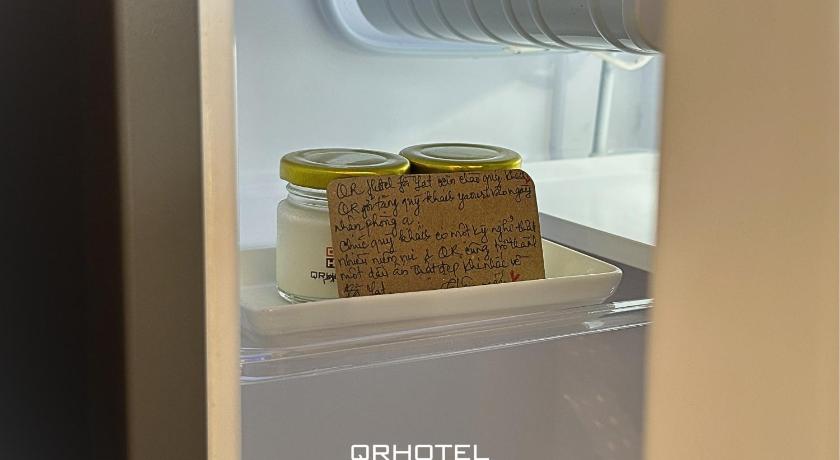 QR Hotel Đà Lạt xin chào quý khách
QR gởi tặng quý khách yaourt ngày
nhận phòng ạ.
Chúc quý khách có một kỳ nghỉ thật
nhiều niềm vui & QR cũng trở thành
một dấu ấn thật đẹp khi nhắc về
Đà Lạt
QRH
QRHOTEL